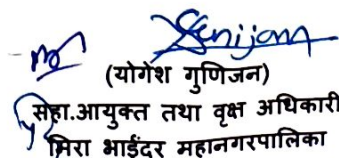 (योगेश गुणिजन)
सहा.आयुक्त तथा वृक्ष अधिकारी
मिरा भाईंदर महानगरपालिका